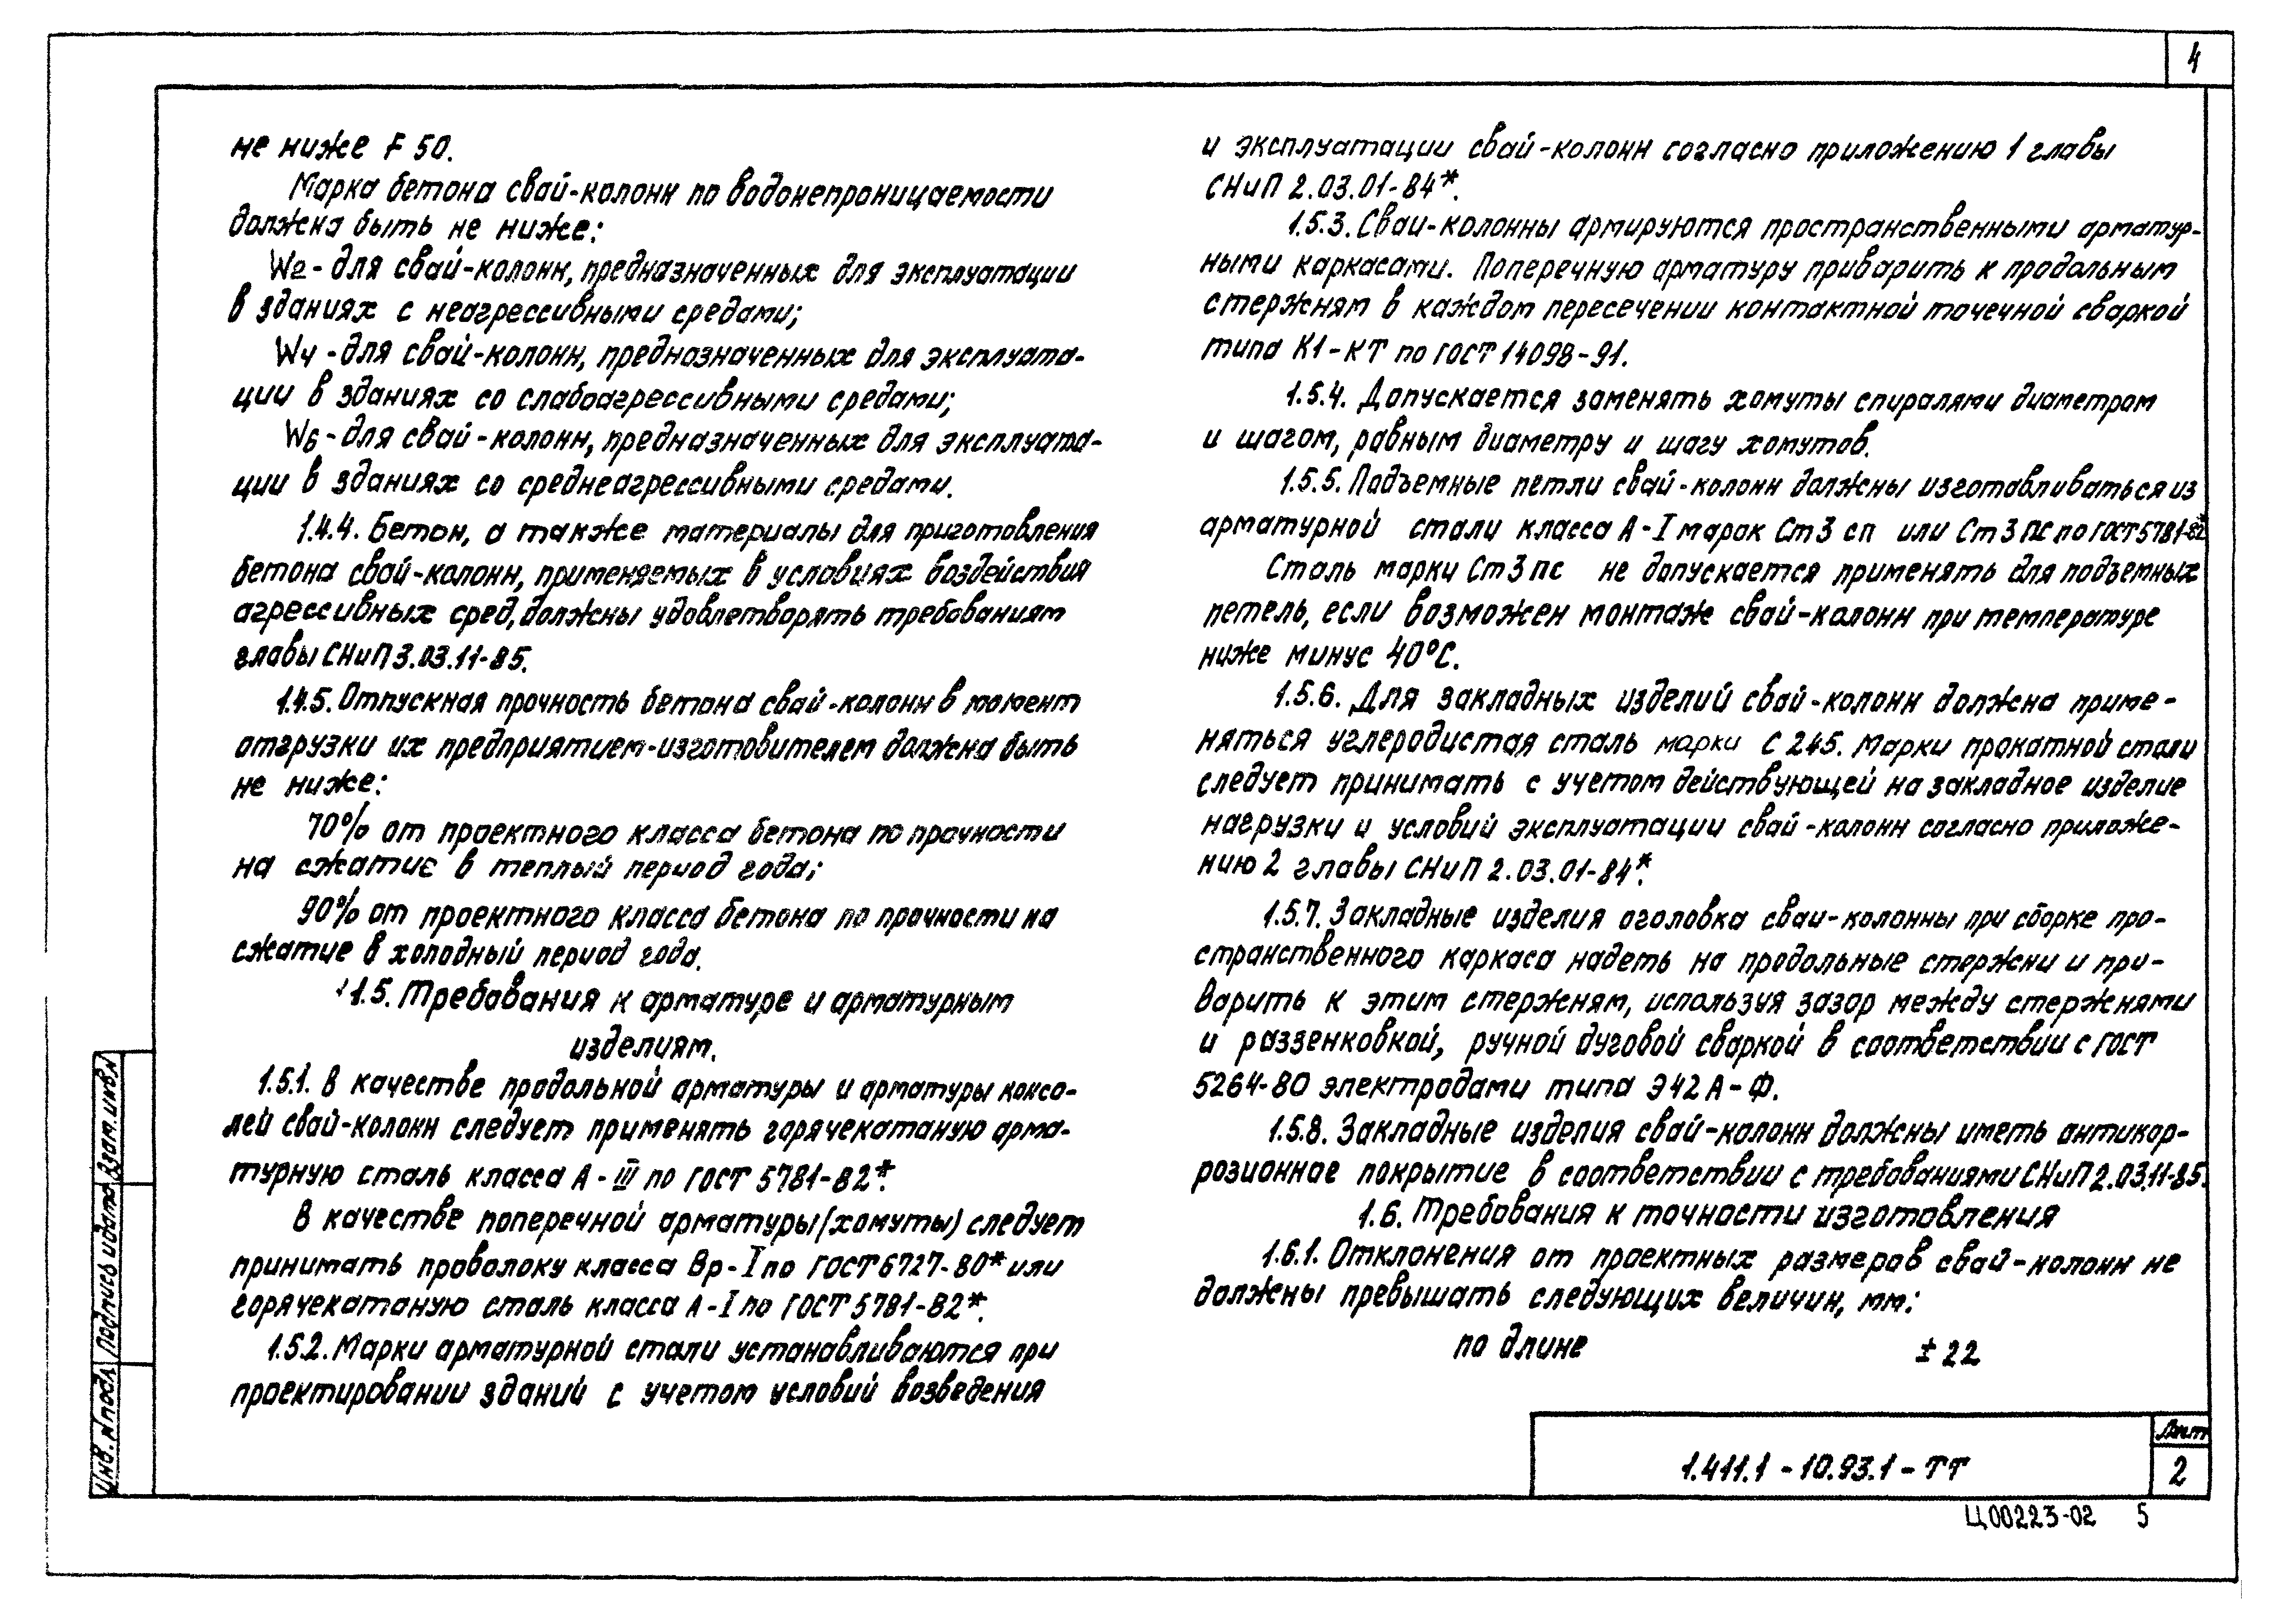 4
не ниже F 50.
Марка бетона свай-колонн по водонепроницаемости
должна быть не ниже:
W2 - для свай-колонн, предназначенных для эксплуатации
в зданиях с неагрессивными средами;
W4 - для свай-колонн, предназначенных для эксплуата-
ции в зданиях со слабоагрессивными средами;
W6 - для свай-колонн, предназначенных для эксплуата-
ции в зданиях со среднеагрессивными средами.
1.4.4. Бетон, а также материалы для приготовления
бетона свай-колонн, применяемых в условиях воздействия
агрессивных сред, должны удовлетворять требованиям
главы СНиП 3.03.11-85.
1.4.5. Отпускная прочность бетона свай-колонн в момент
отгрузки их предприятием-изготовителем должна быть
не ниже:
70% от проектного класса бетона по прочности
на сжатие в теплый период года;
90% от проектного класса бетона по прочности на
сжатие в холодный период года.
1.5. Требования к арматуре и арматурным
изделиям.
1.5.1. В качестве продольной арматуры и арматуры консо-
лей свай-колонн следует применять горячекатаную арма-
турную сталь класса А-III по ГОСТ 5781-82*.
В качестве поперечной арматуры (хомуты) следует
принимать проволоку класса Вр-I по ГОСТ 6727-80* или
горячекатаную сталь класса А-I по ГОСТ 5781-82*.
1.5.2. Марки арматурной стали устанавливаются при
проектировании зданий с учетом условий возведения
и эксплуатации свай-колонн согласно приложению 1 главы
СНиП 2.03.01-84*.
1.5.3. Сваи-колонны армируются пространственными арматур-
ными каркасами. Поперечную арматуру приварить к продольным
стержням в каждом пересечении контактной точечной сваркой
типа К1-КТ по ГОСТ 14098-91.
1.5.4. Допускается заменять хомуты спиралями диаметром
и шагом, равным диаметру и шагу хомутов.
1.5.5. Подъемные петли свай-колонн должны изготавливаться из
арматурной стали класса А-I марок Ст3 сп или Ст3 пс по ГОСТ 5781-82*
Сталь марки Ст3пс не допускается применять для подъемных
петель, если возможен монтаж свай-колонн при температуре
ниже минус 40°С.
1.5.6. Для закладных изделий свай-колонн должна приме-
няться углеродистая сталь марки С 245. Марки прокатной стали
следует принимать с учетом действующей на закладное изделие
нагрузки и условий эксплуатации свай-колонн согласно приложе-
нию 2 главы СНиП 2.03.01-84*.
1.5.7. Закладные изделия оголовка сваи-колонны при сборке про-
странственного каркаса надеть на продольные стержни и при-
варить к этим стержням, используя зазор между стержнями
и раззенковкой, ручной дуговой сваркой в соответствии с ГОСТ
5264-80 электродами типа Э42А-Ф.
1.5.8. Закладные изделия свай-колонн должны иметь антикор-
розионное покрытие в соответствии с требованиями СНиП 2.03.11-85.
1.6. Требования к точности изготовления
1.6.1. Отклонения от проектных размеров свай-колонн не
должны превышать следующих величин, мм:
по длине ±22
Инв. № подл. Подпись и дата Взам. инв. №
1.411.1-10.93.1-ТТ
Лист
2
Ц00223-02 5